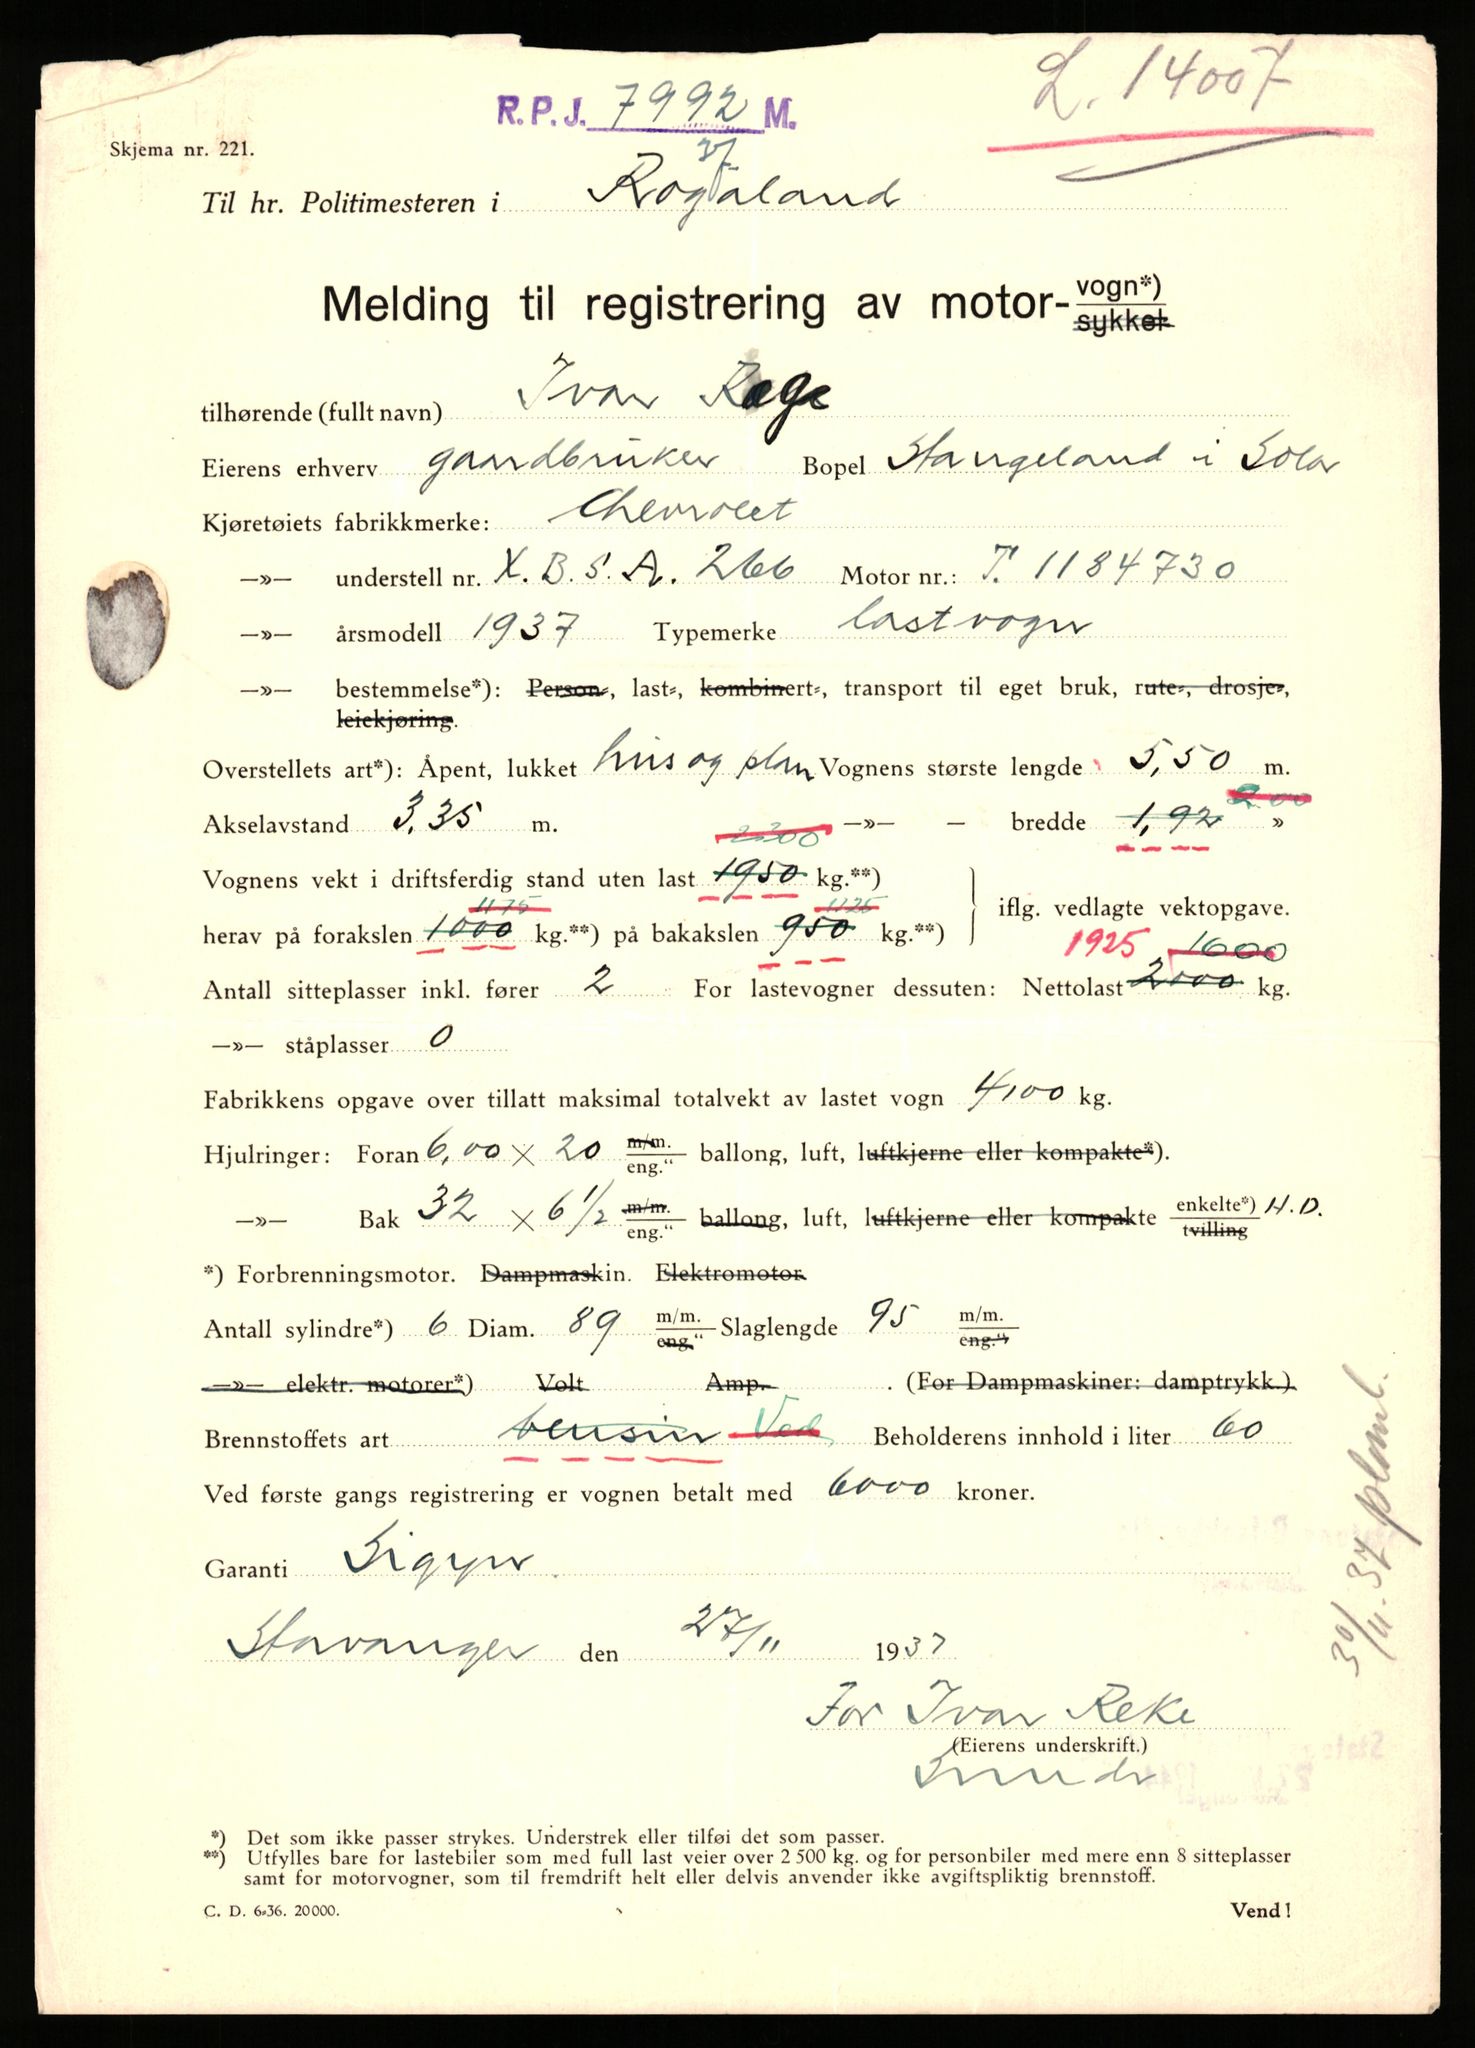 L. 14007
R.P.J. 7992 M.
Skjema nr. 221.
Til hr. Politimesteren i Rogaland
Melding til registrering av motor- vogn*)
sykkel
tilhørende (fullt navn) Ivar Rege
Eierens erhverv gaardbruker Bopel Stangeland i Sola
Kjøretøiets fabrikkmerke: Chevrolet
—»— understell nr. X. B. S. A. 266 Motor nr.: T. 1184730
—»— årsmodell 1937 Typemerke lastvogn
—»— bestemmelse*): Person-, last-, kombinert-, transport til eget bruk, rute-, drosje-,
leiekjøring.
Overstellets art*): Åpent, lukket hus og plan Vognens største lengde 5,50 m.
2.00
Akselavstand 3,35 m. —»— — bredde 1,92 »
2300
Vognens vekt i driftsferdig stand uten last 1950 kg.**)
1175 1125
herav på forakslen 1000 kg.**) på bakakslen 950 kg.**) iflg. vedlagte vektopgave.
1925 1600
Antall sitteplasser inkl. fører 2 For lastevogner dessuten: Nettolast 2000 kg.
—»— ståplasser 0
Fabrikkens opgave over tillatt maksimal totalvekt av lastet vogn 4100 kg.
Hjulringer: Foran 6,00 × 20 m/m. eng." ballong, luft, luftkjerne eller kompakte*).
—»— Bak 32 × 6 1/2 m/m. eng." ballong, luft, luftkjerne eller kompakte enkelte*) tvilling H.D.
*) Forbrenningsmotor. Dampmaskin. Elektromotor.
Antall sylindre*) 6 Diam. 89 m/m. eng." Slaglengde 95 m/m. eng."
—»— elektr. motorer*) Volt Amp. . (For Dampmaskiner: damptrykk.)
Brennstoffets art bensin Ved Beholderens innhold i liter 60
Ved første gangs registrering er vognen betalt med 6000 kroner.
Garanti Sigyn
Stavanger den 27/11 1937
For Ivar Reke
(Eierens underskrift.)
30/11.37 plomb.
*) Det som ikke passer strykes. Understrek eller tilføi det som passer.
**) Utfylles bare for lastebiler som med full last veier over 2 500 kg. og for personbiler med mere enn 8 sitteplasser
samt for motorvogner, som til fremdrift helt eller delvis anvender ikke avgiftspliktig brennstoff.
C. D. 6-36. 20000.
Vend!